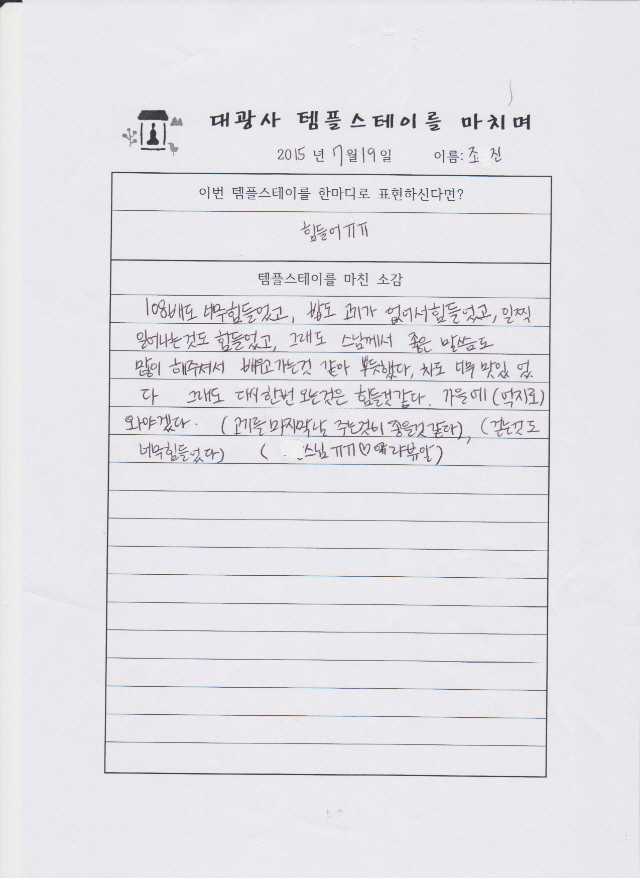 대광사 템플스테이를 마치며
2015 년 7월19일 이름: 조 진
이번 템플스테이를 한마디로 표현하신다면?
힘들어ㅠㅠ
템플스테이를 마친 소감
108배도 너무힘들었고, 밥도 고기가 없어서힘들었고, 일찍
일어나는것도 힘들었고, 그래도 스님께서 좋은 말씀도
많이 해주셔서 배우고가는것 같아 뿌듯했다, 차도 너무 맛있 었
다 그래도 다시한번 오는것은 힘들것같다. 가을에 (억지로)
와야겠다. (고기를 마지막날 주는것이 좋을것 같다), (걷는것도
너무힘들었다) ( 스님 ㅠㅠ♡